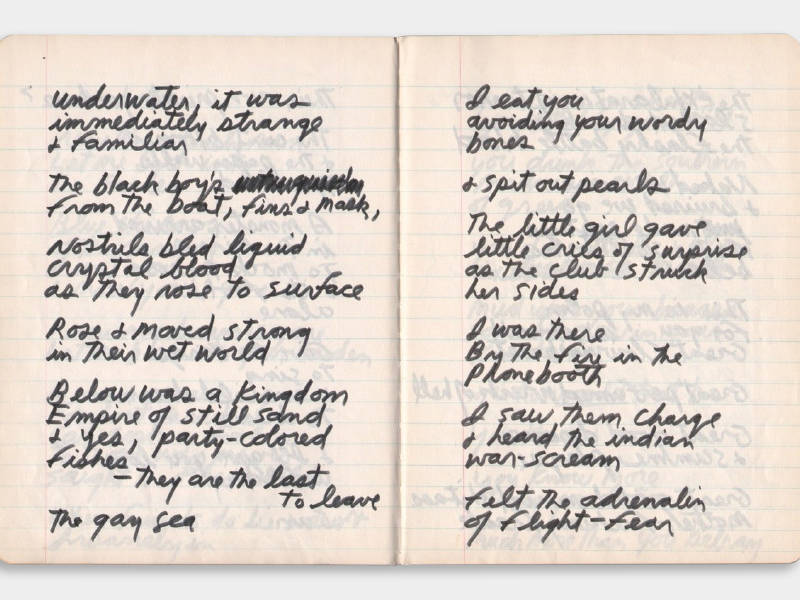 underwater, it was
immediately strange
& familiar
The black boy's
from the boat, fins & mask,
Nostrils bled liquid
crystal blood
as they rose to surface
Rose & moved strong
in their wet world
Below was a Kingdom
Empire of still sand
& yes, party-colored
Fishes
– they are the last
to leave
The gay sea
I eat you
avoiding your wordy
bones
& spit out pearls
The little girl gave
little cries of surprise
as the club struck
her sides
I was there
By the fire in the
Phonebooth
I saw them charge
& heard the indian
war-scream
felt the adrenalin
of flight-fear